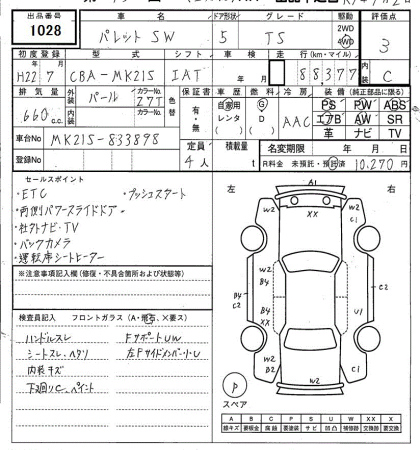 出品番号 車名 ドア形状 グレード 駆動 評価点
1028 パレットSW 5 TS 2WD 4WD 3
初度登録 型式 シフト 車検 走行(km・マイル) 内装
H22 7 CBA-MK21S IAT 年 月 88377 C
排気量 外装 パール カラーNo. Z7T 色替 保証書 車歴 燃料 冷房 装備(純正部品に限る)
660 c.c. 内装 カラーNo. 有・無 自家用 レンタ G D AAC PS PW ABS
エアB AW SR
革 ナビ TV
車台No MK21S-833898 定員 積載量 名変期限 年 月
登録No 4人 t R料金 未預託・預託済 10,270円
セールスポイント
・ETC ・プッシュスタート
・両側パワースライドドア
・社外ナビ・TV
・バックカメラ
・運転席シートヒーター
※注意事項記入欄(修復・不具合箇所および状態等)
検査員記入 フロントガラス(A・飛石、×要ス)
ハンドルスレ FサポートUW
シートスレ、ヘタリ 左FサイドメンバーU
内装キズ
下廻りC、ペイント
左 右
A1
W2 XX C1
W2
B4
B4 C2 C2
B4 XX U1
W2 B2 W2 C1
P
スペア
A B C P S U W X XX
線キズ 要板金 腐蝕 要塗装 サビ 凹凸 補修跡 要交換 交換済